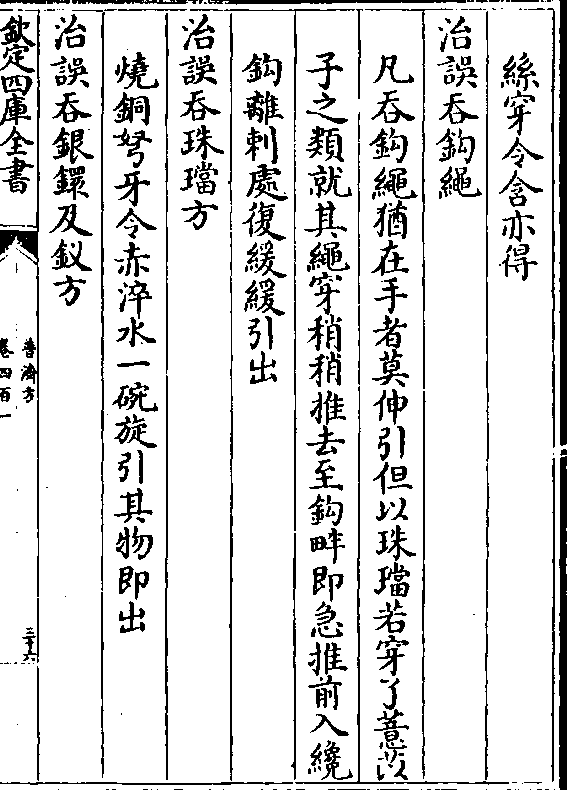 絲穿令含亦得
治誤吞鈎繩
凡吞鈎繩猶在手者莫伸引但以珠璫若穿了薏苡
子之類就其繩穿稍稍推去至鈎畔即急推前入纔
鈎離刺處復緩緩引出
治誤吞珠璫方
燒銅弩牙令赤淬水一碗旋引其物即出
治誤吞銀鐶及釵方
欽定四庫全書
普濟方
卷四百一
三十六